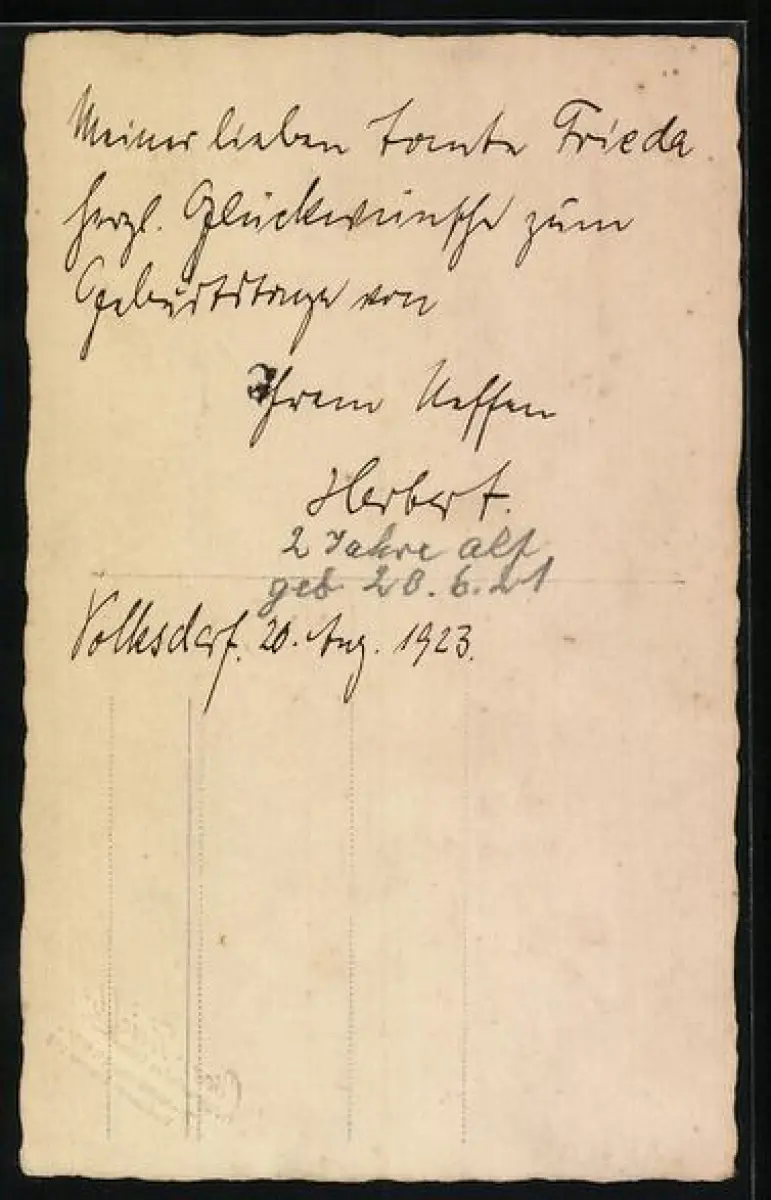 Meiner lieben Tante Frieda
herzl. Glückwünsche zum
Geburtstage von
Ihrem Neffen
Herbert.
2 Jahre alt
geb. 28.6.21
Volksdorf. 20. Aug. 1923.